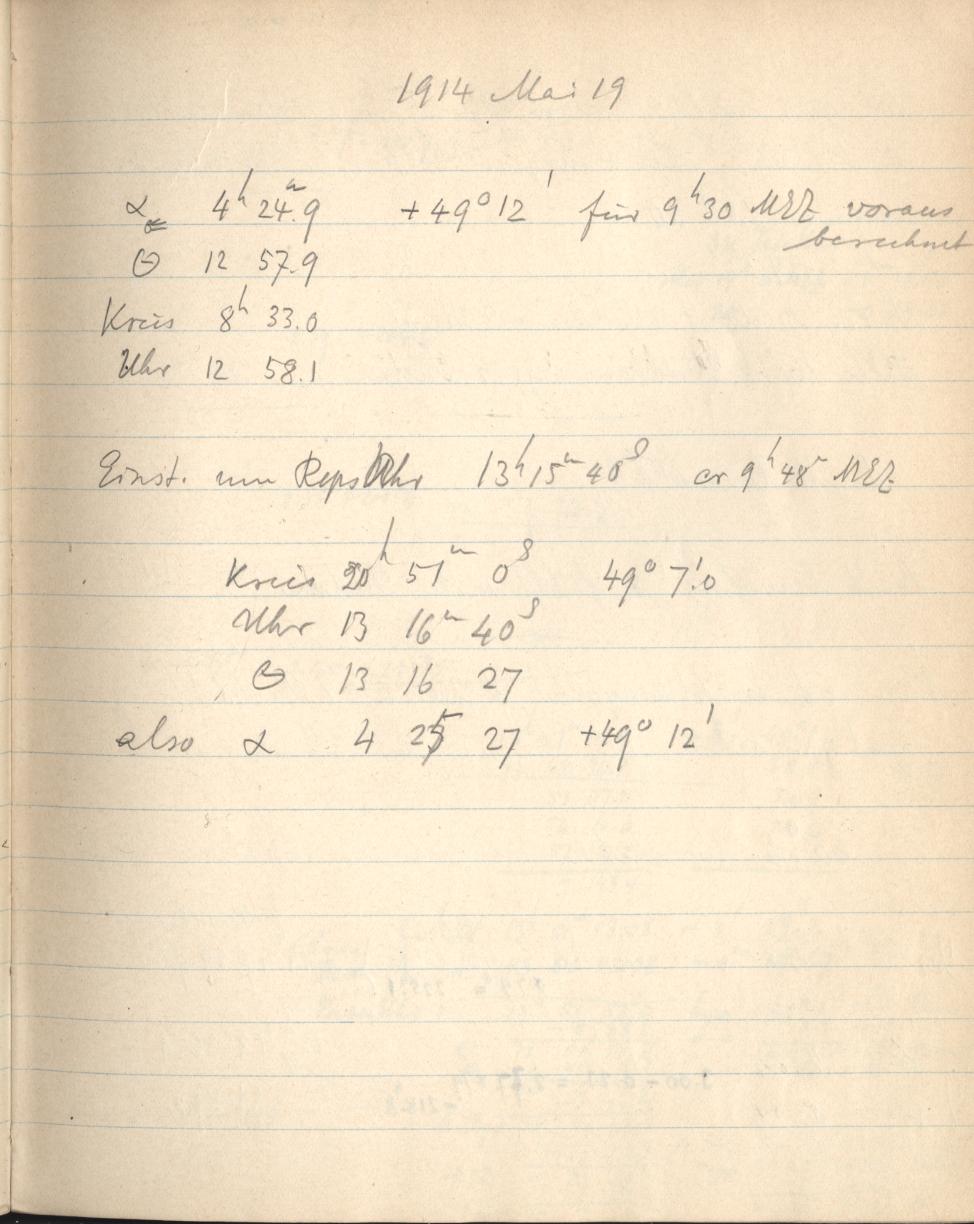 1914 Mai 19
α☄ 4ʰ 24ᵐ.9 +49° 12' für 9ʰ30 MEZ voraus
berechnet
Θ 12 57.9
Kreis 8ʰ 33.0
Uhr 12 58.1
Einst. um Reps Uhr 13ʰ 15ᵐ 40ˢ cr 9ʰ 48ᵐ MEZ
Kreis 20ʰ 51ᵐ 0ˢ 49° 7!0
Uhr 13 16ᵐ 40ˢ
Θ 13 16 27
also α 4 25 27 +49° 12'